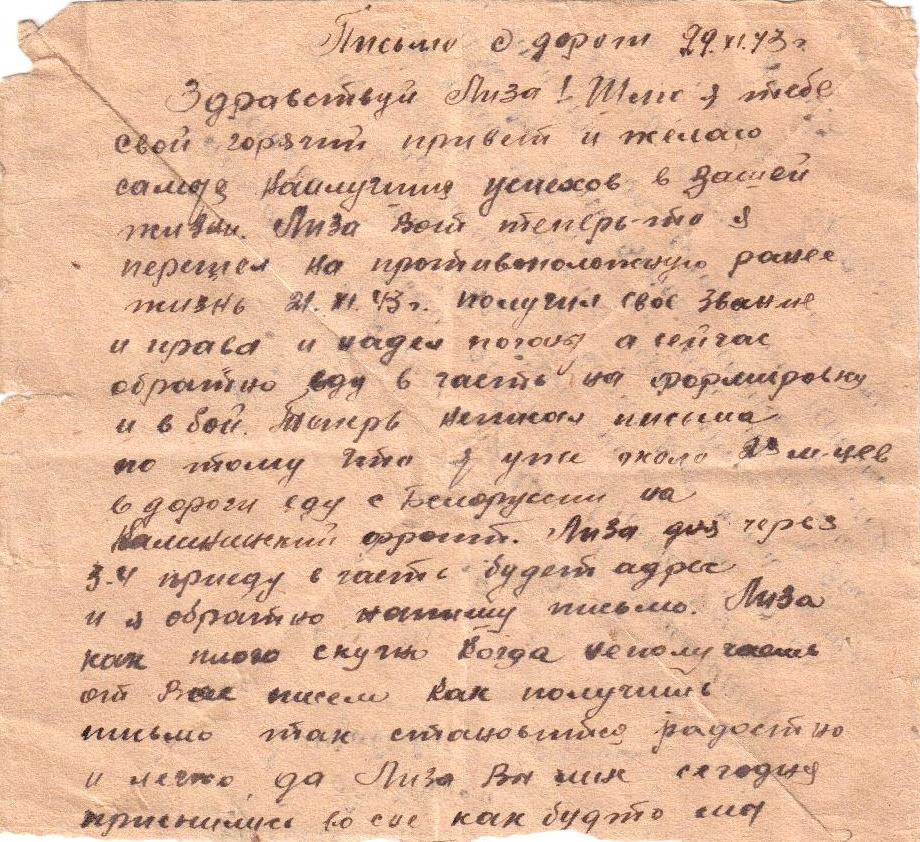 Письмо с дороги 29.XI.43 г
Здравствуй Лиза! Шлю я тебе
свой горячий привет и желаю
самые наилучшия успехов в Вашей
жизни. Лиза Вот теперь-то я
перешел на противоположную ранее
жизнь 21.XI.43 г. получил свое звание
и права и надел погоны а сейчас
обратно еду в часть на формировку
и в бой. Теперь неписал письма
по тому что я уже около м-цев
в дороги еду с Белоруссии на
Калининский фронт. Лиза дня через
3-4 приеду в часть будет адрес
и я обратно напишу письмо. Лиза
как плохо скучно когда неполучаешь
от Вас писем как получишь
письмо так становится радостно
и легко, да Лиза Вы мне сегодня
приснились во сне как будто мы